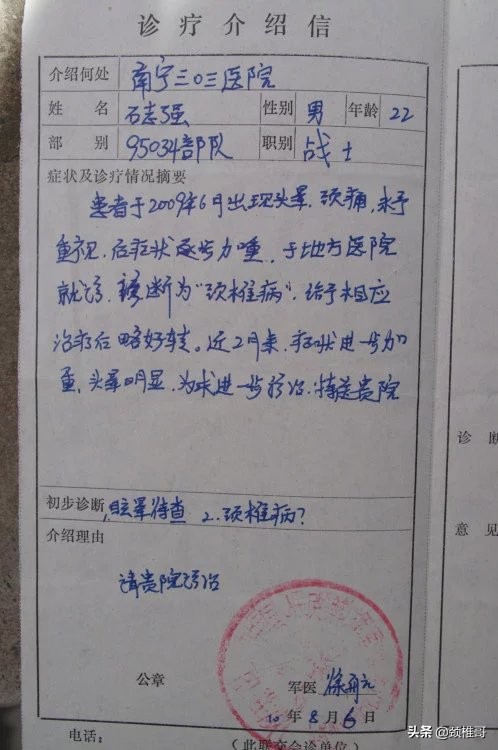 诊疗介绍信
介绍何处 南宁三〇三医院
姓名 石志强 性别 男 年龄 22
部别 95034部队 职别 战士
症状及诊疗情况摘要
患者于2009年6月出现头晕、颈痛,未予
重视,后症状逐步加重,于地方医院
就诊,诊断为“颈椎病”,给予相应
治疗后略好转。近2月来,症状进一步加
重,头晕明显,为求进一步诊治,特送贵院
初步诊断 1.眩晕待查 2.颈椎病?
介绍理由
请贵院诊治
公章 军医
10年8月6日
电话:
(此联交会诊单位)
诊断
意见
头条 @颈椎哥